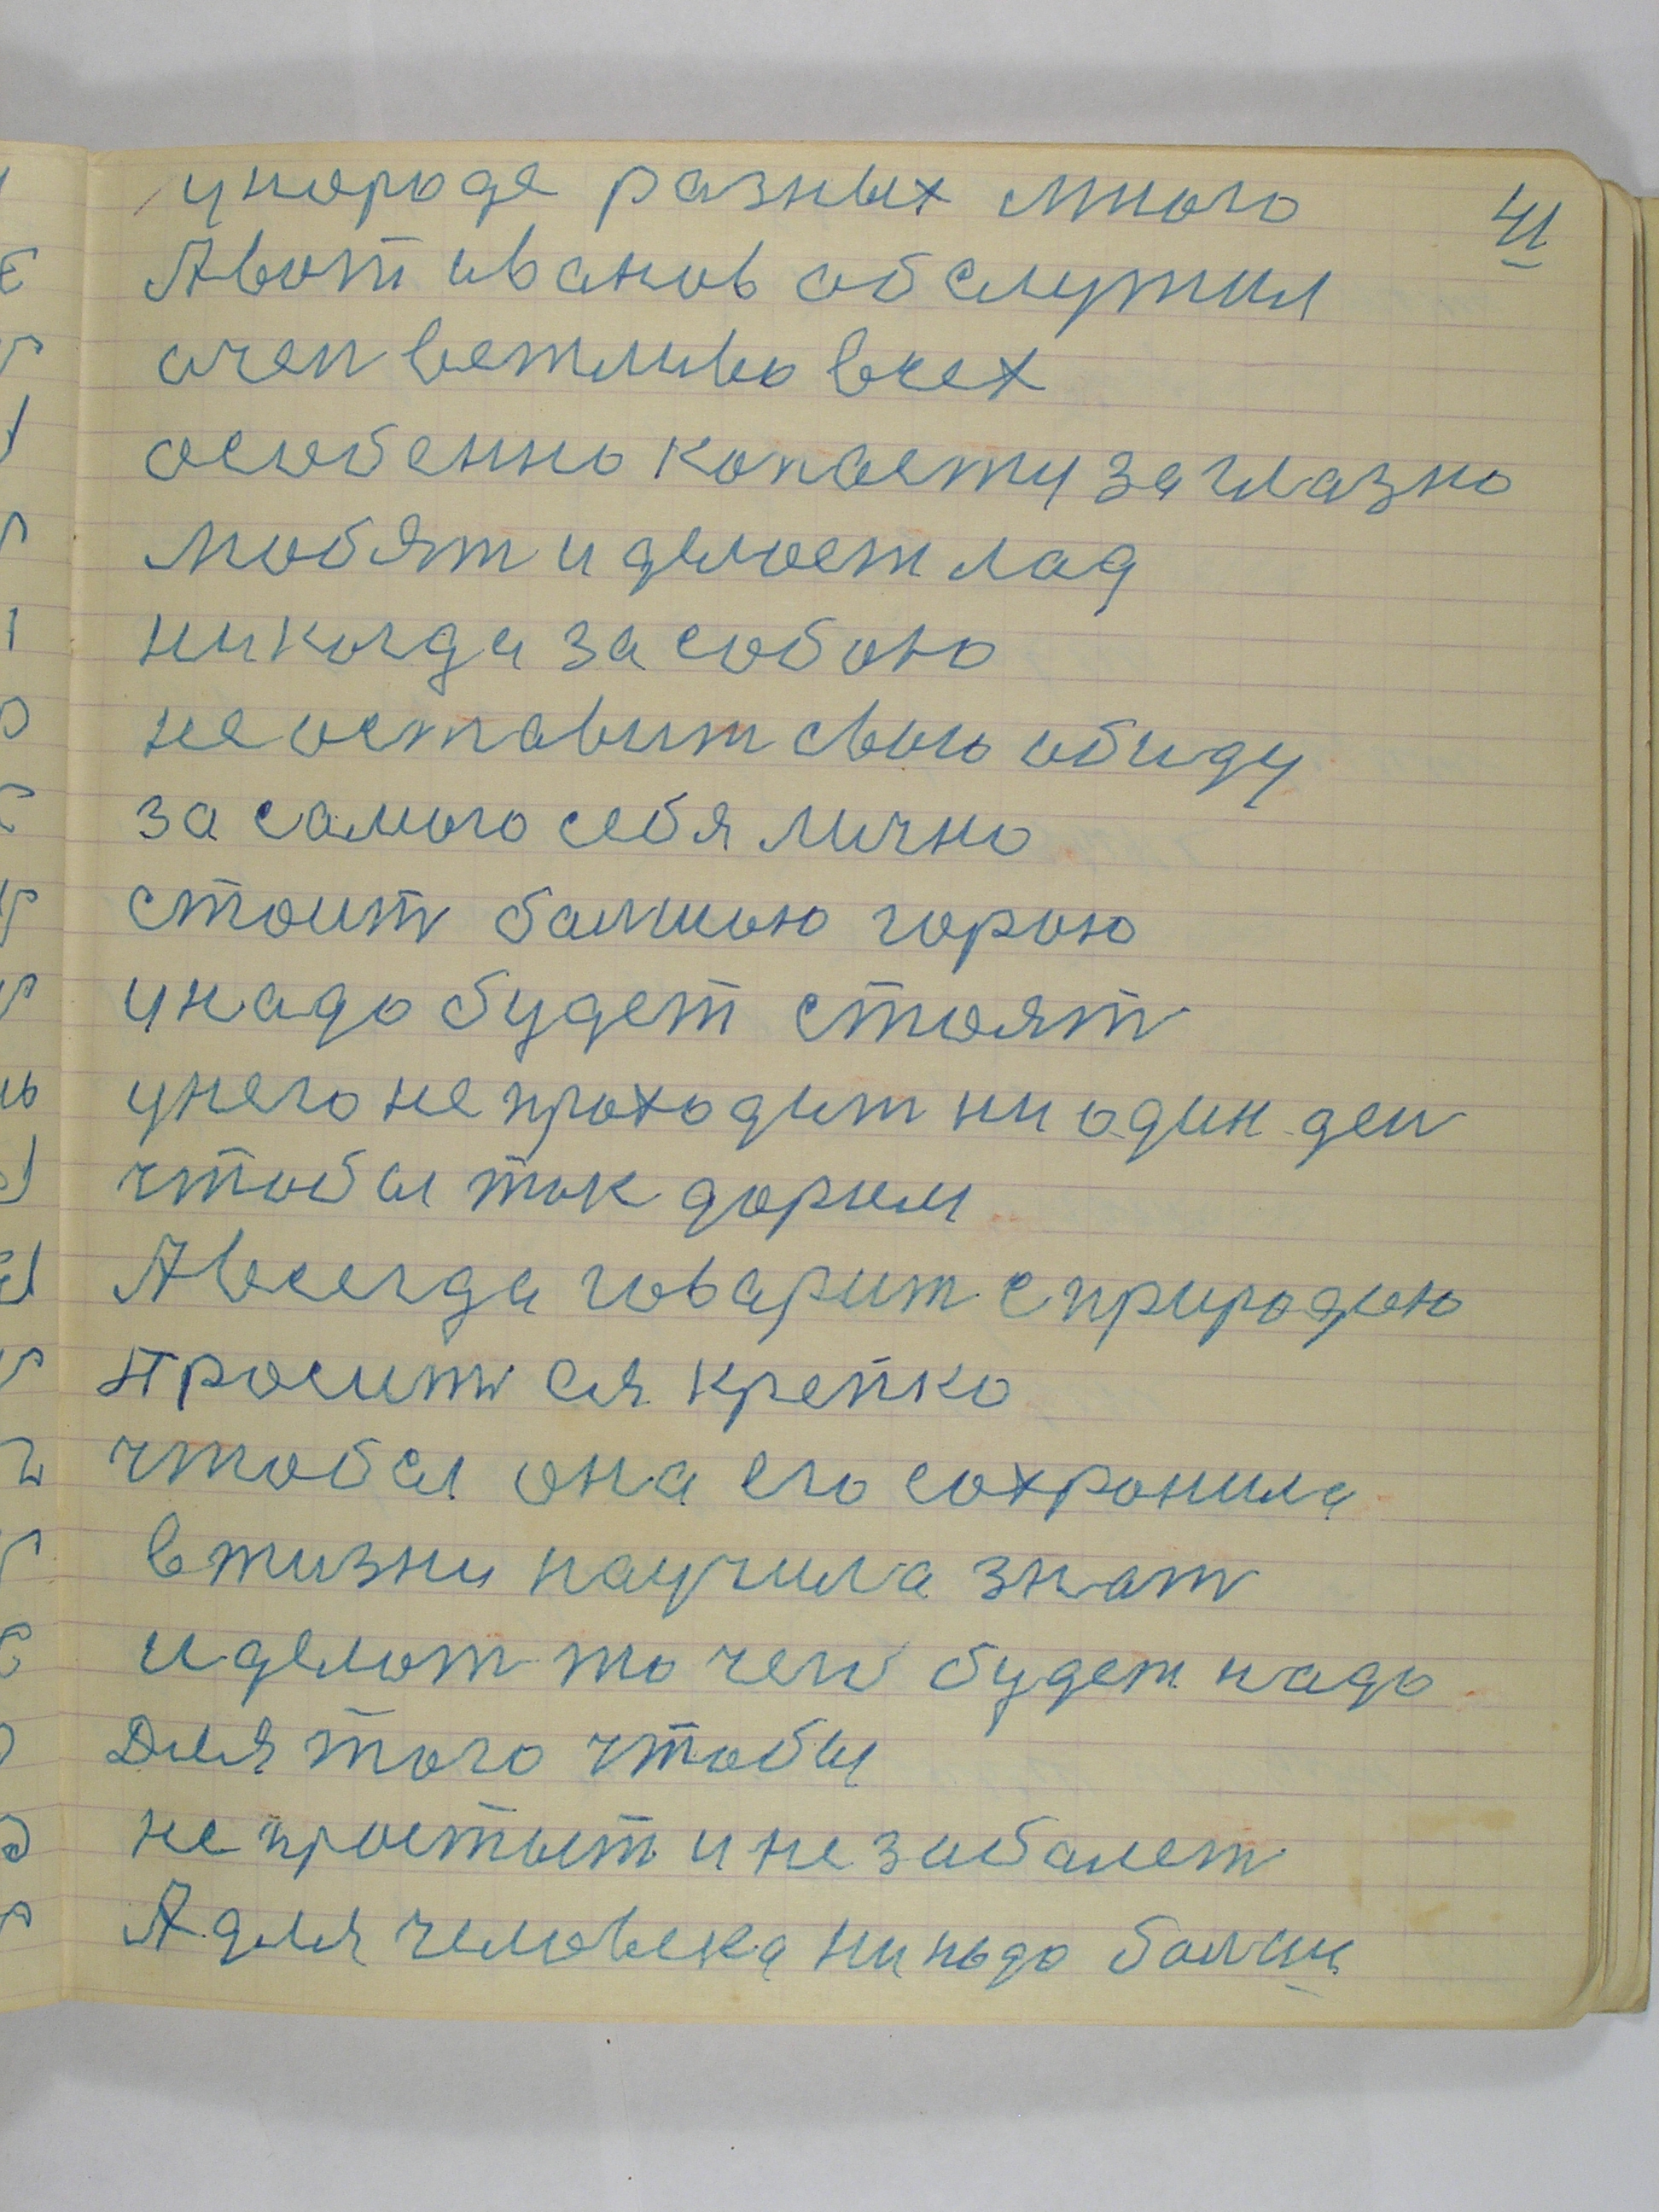 41
унороде разных много
А вот иванов обслужил
очен вежливо всех
особенно копасту заглазно
любят и делоет лад
никогда за собою
не оставит свою обиду
за самого себя лично
стоит балшою горою
у надо будет стоят
у него не проходит ни один ден
чтобы так дорим
А всегда говарит с природою
проситься крепко
чтобы она его сохронила
в жизни научила знат
и делот то чего будет надо
Для того чтобы
не простыт и не забалет
А для человека ни надо балши